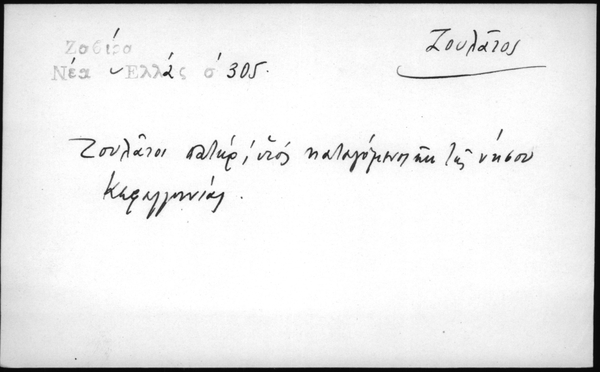 Ζαβίρα
Νέα Ἑλλάς σ 305.
Ζουλᾶτος
Ζουλᾶτοι πατήρ, υἱός καταγόμενοι ἐκ τῆς νήσου
Κεφαλληνίας.